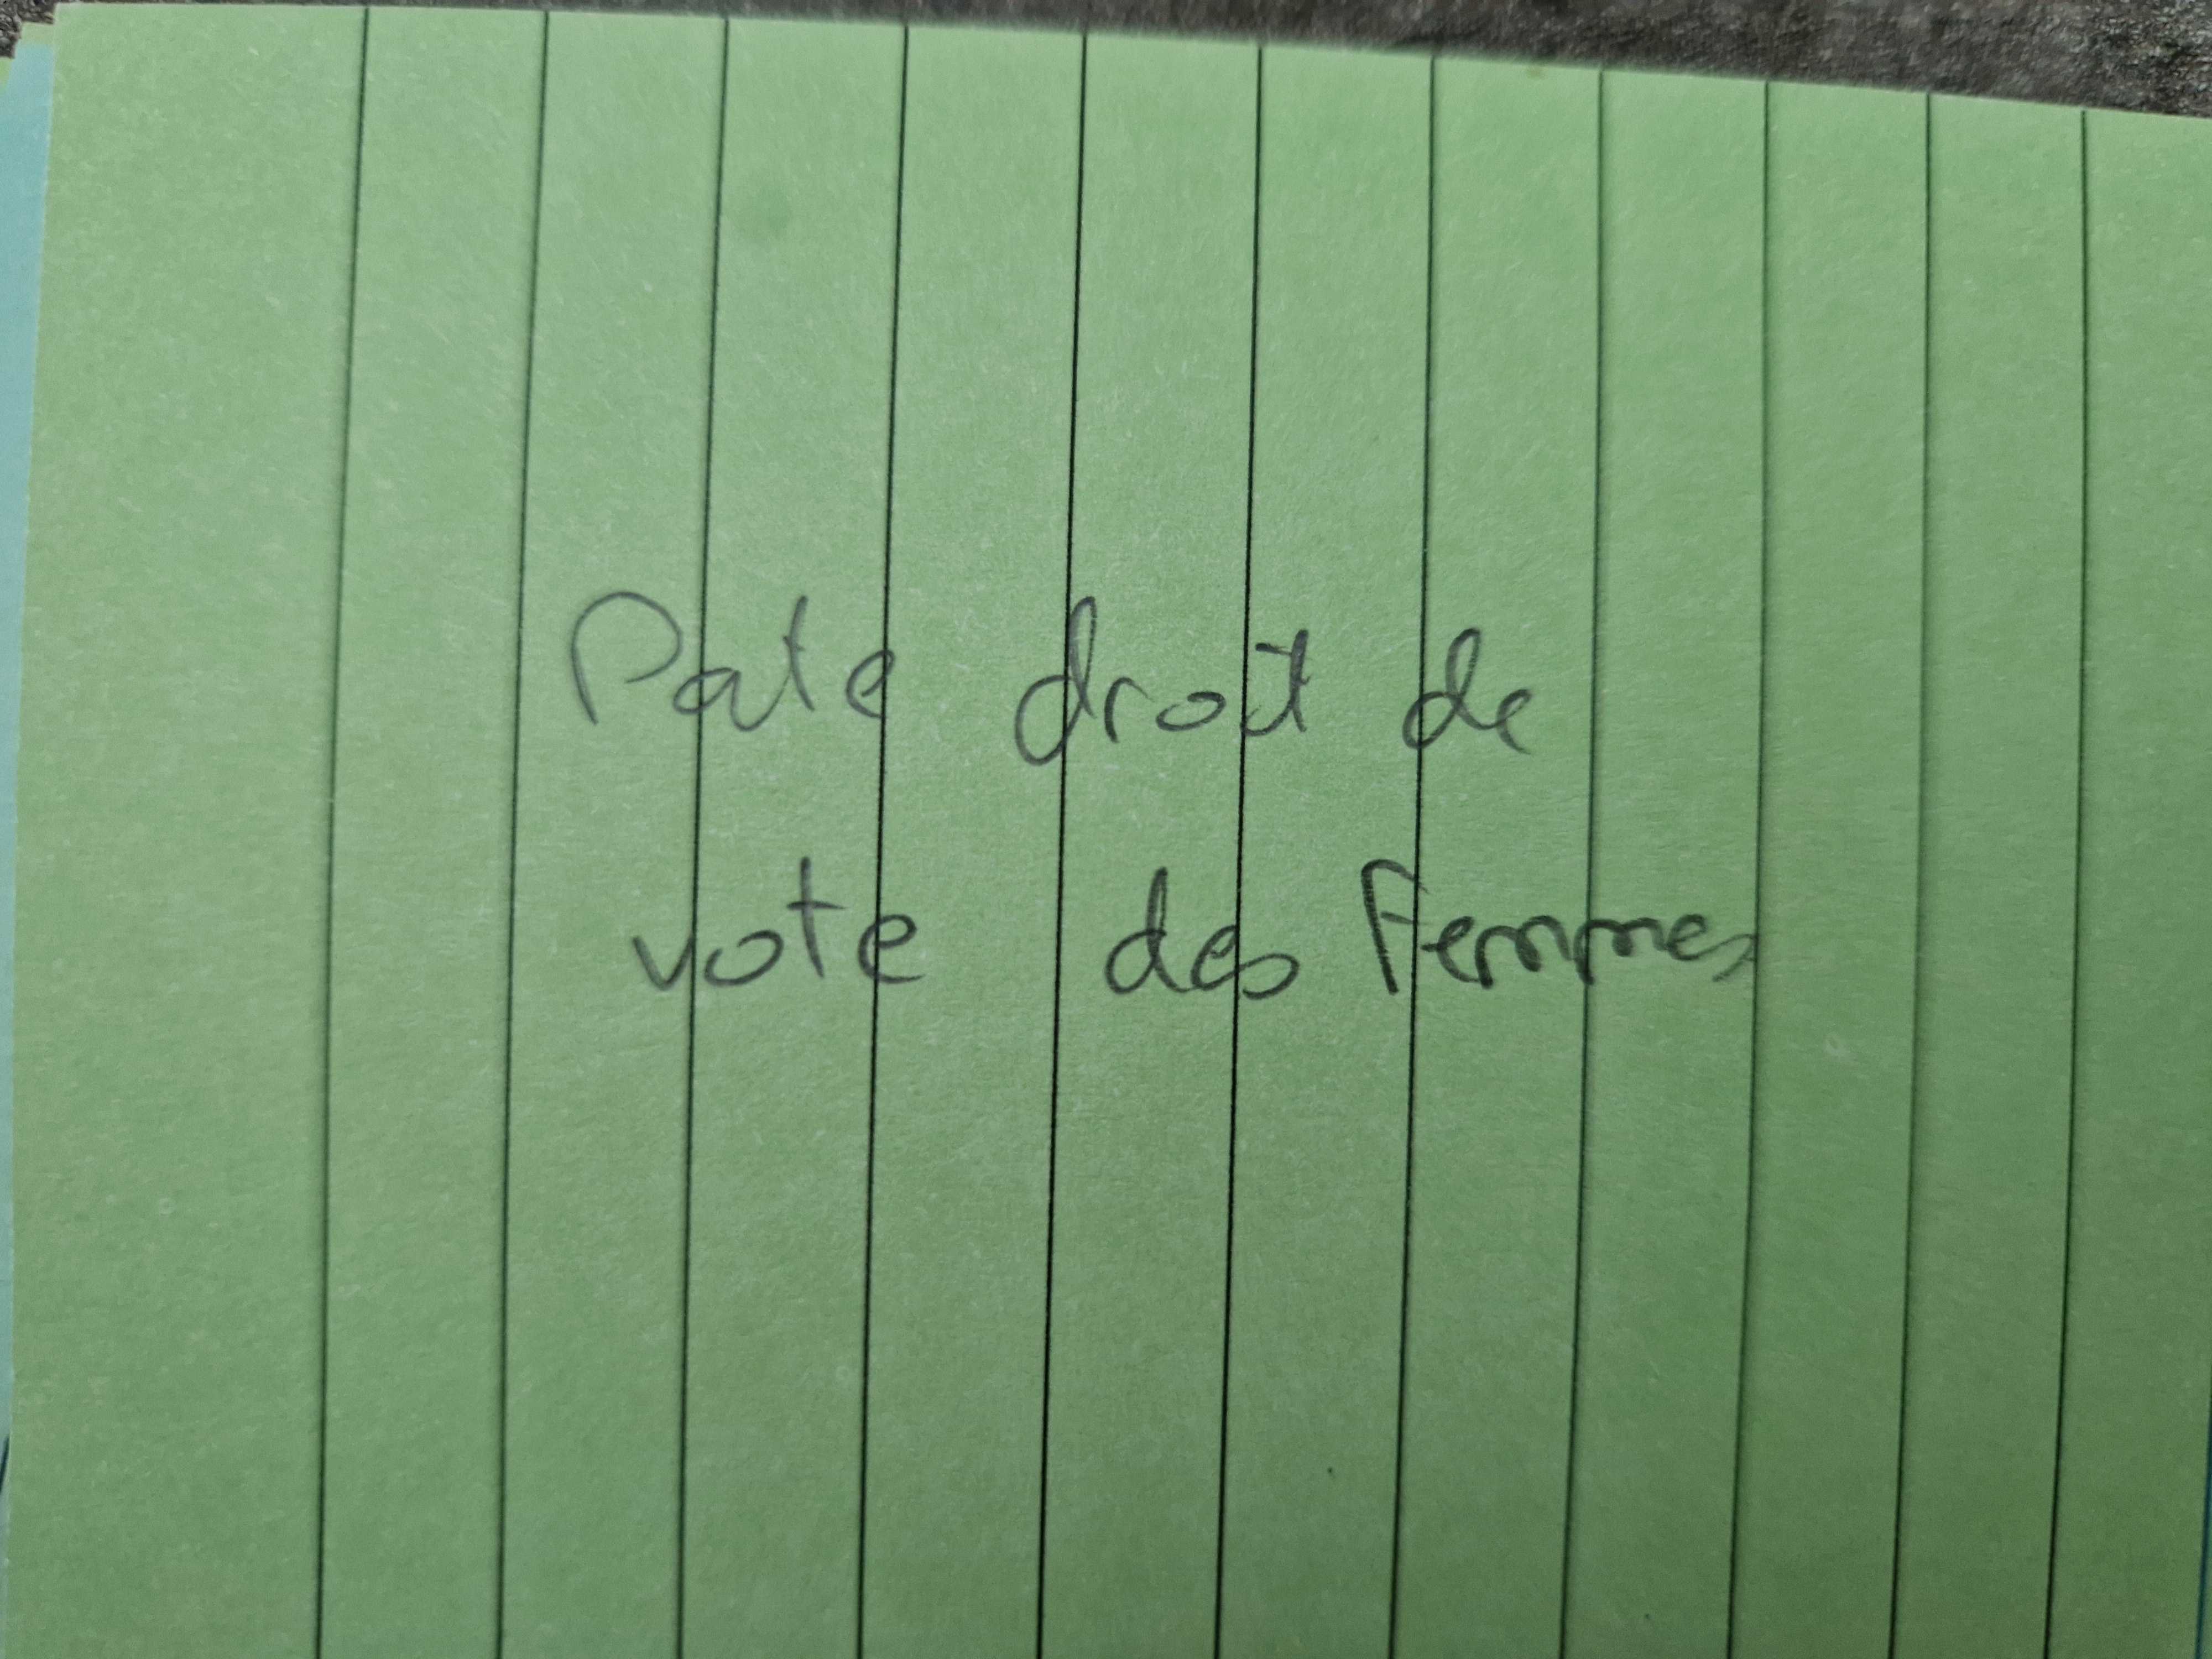 Date droit de
vote des Femmes